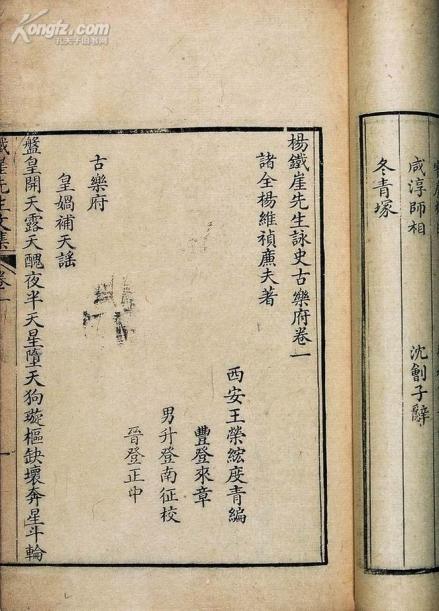 Kongfz.com
孔夫子旧书网
咸淳師相　沈劊子辭
冬青塚
楊鐵崖先生詠史古樂府卷一
諸全楊維禎廉夫著
西安王榮絃度青編
豐登來章
男升登南征校
晉登正中
古樂府
皇媧補天謡
盤皇開天露天醜夜半天星墮天狗璇樞缺壞奔星斗輪
鐵崖先生文集　卷一　一